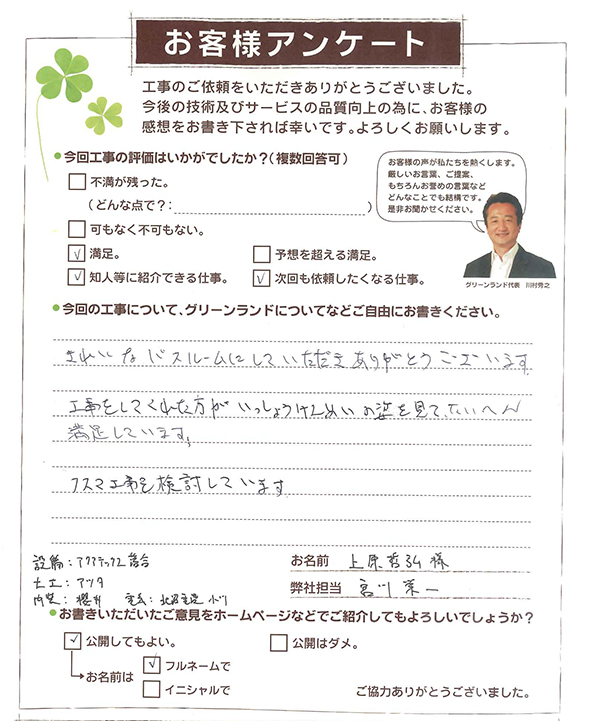 お客様アンケート
工事のご依頼をいただきありがとうございました。
今後の技術及びサービスの品質向上の為に、お客様の
感想をお書き下されば幸いです。よろしくお願いします。
●今回工事の評価はいかがでしたか?(複数回答可)
お客様の声が私たちを熱くします。
厳しいお言葉、ご提案、
もちろんお誉めの言葉など
どんなことでも結構です。
是非お聞かせください。
グリーンランド代表 川村秀之
不満が残った。
(どんな点で?: )
可もなく不可もない。
満足。 予想を超える満足。
知人等に紹介できる仕事。 次回も依頼したくなる仕事。
●今回の工事について、グリーンランドについてなどご自由にお書きください。
きれいなバスルームにしていただきありがとうございます
工事をしてくれた方がいっしょうけんめいの姿を見て、たいへん
満足しています。
フスマ工事を検討しています
設備:アクアテックス 落合
大工:アツタ
内装:櫻井 電気: 小川
お名前 上原哲弘 様
弊社担当 宮川 栄一
●お書きいただいたご意見をホームページなどでご紹介してもよろしいでしょうか?
公開してもよい。 公開はダメ。
お名前は フルネームで
イニシャルで
ご協力ありがとうございました。